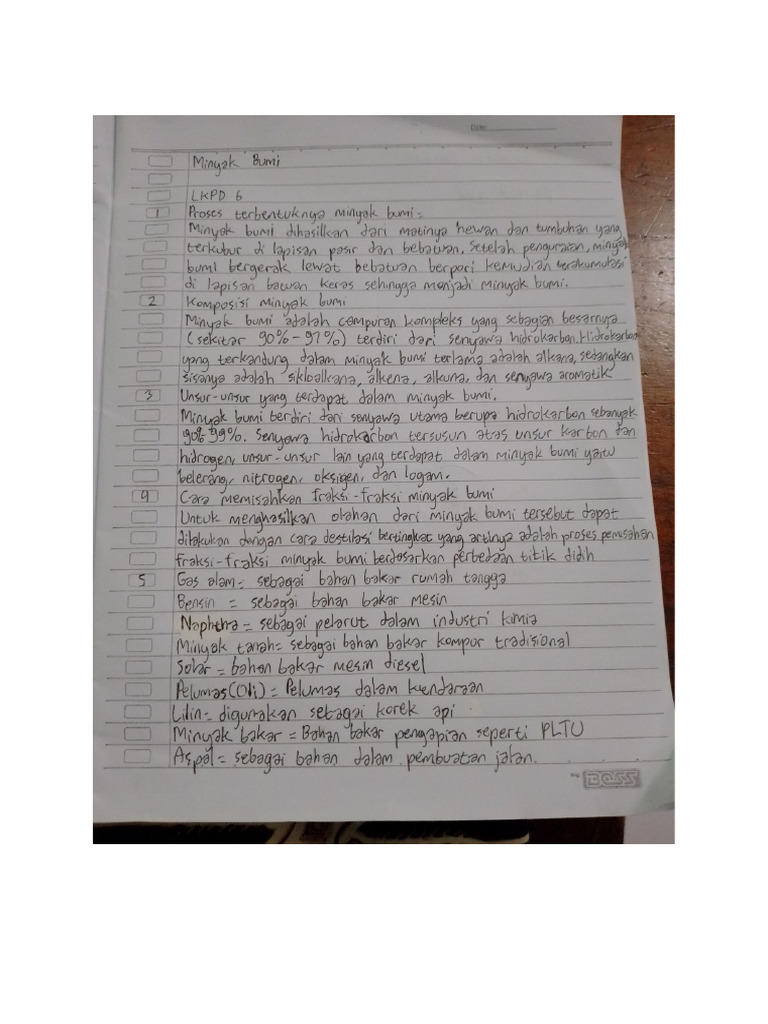 Date:
Minyak Bumi
LKPD 6
1 Proses terbentuknya minyak bumi:
Minyak bumi dihasilkan dari matinya hewan dan tumbuhan yang
terkubur di lapisan pasir dan bebatuan, setelah penguraian, minyak
bumi bergerak lewat bebatuan berpori kemudian terakumulasi
di lapisan batuan keras sehingga menjadi minyak bumi.
2 Komposisi minyak bumi
Minyak bumi adalah campuran kompleks yang sebagian besarnya
(sekitar 90%-97%) terdiri dari senyawa hidrokarbon. Hidrokarbon
yang terkandung dalam minyak bumi terlama adalah alkana, sedangkan
sisanya adalah sikloalkana, alkena, alkuna, dan senyawa aromatik
3 Unsur-unsur yang terdapat dalam minyak bumi.
Minyak bumi terdiri dari senyawa utama berupa hidrokarbon sebanyak
90% 99%. Senyawa hidrokarbon tersusun atas unsur karbon dan
hidrogen, unsur-unsur lain yang terdapat dalam minyak bumi yaitu
belerang, nitrogen, oksigen, dan logam.
4 Cara memisahkan fraksi-fraksi minyak bumi
Untuk menghasilkan olahan dari minyak bumi tersebut dapat
dilakukan dengan cara destilasi bertingkat yang artinya adalah proses pemisahan
fraksi-fraksi minyak bumi berdasarkan perbedaan titik didih
5 Gas alam = sebagai bahan bakar rumah tangga
Bensin = sebagai bahan bakar mesin
Naphtha = sebagai pelarut dalam industri kimia
Minyak tanah = sebagai bahan bakar kompor tradisional
Solar = bahan bakar mesin diesel
Pelumas (Oli) = Pelumas dalam kendaraan
Lilin = digunakan sebagai korek api
Minyak bakar = Bahan bakar pengapian seperti PLTU
Aspal = sebagai bahan dalam pembuatan jalan.
BOSS